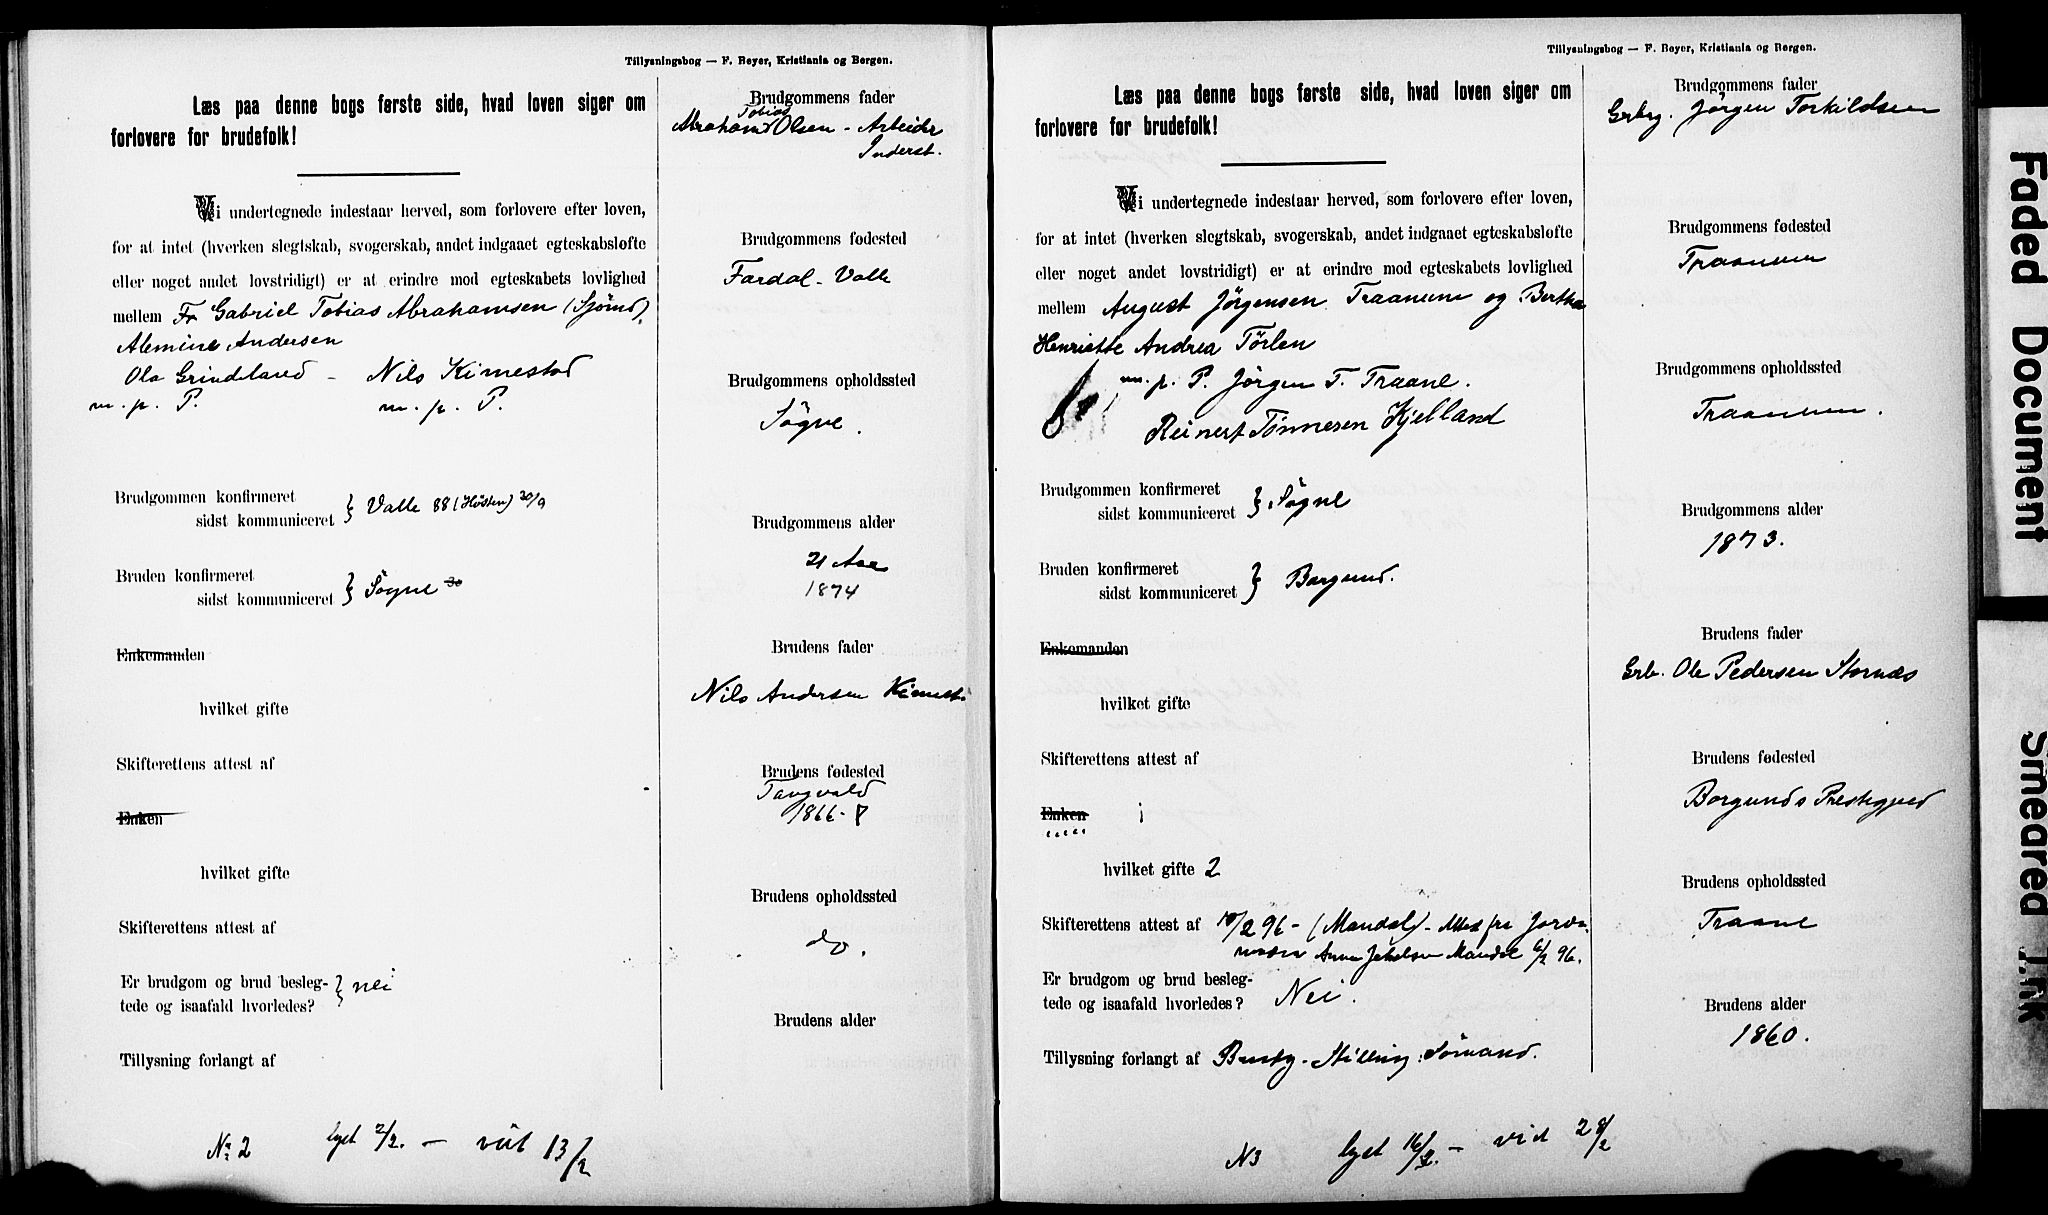 Tillysningsbog — F. Beyer, Kristiania og Bergen.
Læs paa denne bogs første side, hvad loven siger om
forlovere for brudefolk!
Vi undertegnede indestaar herved, som forlovere efter loven,
for at intet (hverken slegtskab, svogerskab, andet indgaaet egteskabsløfte
eller noget andet lovstridigt) er at erindre mod egteskabets lovlighed
mellem Fr Gabriel Tobias Abrahamsen (Sjømd)
Alemine Andersen
Ola Grindland - Nils Kimestad
m. p. P. m. p. P.
Brudgommen konfirmeret
sidst kommuniceret } Valle 88 (Høsten) 30/9
Bruden konfirmeret
sidst kommuniceret } Søgne
Enkemanden
hvilket gifte
Skifterettens attest af
Enken
hvilket gifte
Skifterettens attest af
Er brudgom og brud besleg-
tede og isaafald hvorledes? } nei
Tillysning forlangt af
No 2 lyst 2/2. — viet 13/2
Brudgommens fader
Tobias
Abraham Olsen - Arbeider
Inderst.
Brudgommens fødested
Fardal - Valle
Brudgommens opholdssted
Søgne.
Brudgommens alder
21 Aar
1874
Brudens fader
Nils Andersen Kimest
Brudens fødested
Tangvald
1866 -
Brudens opholdssted
do.
Brudens alder
Tillysningsbog — F. Beyer, Kristiania og Bergen.
Læs paa denne bogs første side, hvad loven siger om
forlovere for brudefolk!
Vi undertegnede indestaar herved, som forlovere efter loven,
for at intet (hverken slegtskab, svogerskab, andet indgaaet egteskabsløfte
eller noget andet lovstridigt) er at erindre mod egteskabets lovlighed
mellem August Jørgensen Traanum og Bertha
Henriette Andrea Tørlen
m. p. P. Jørgen T. Traane.
Reinert Tønnesen Kjelland
Brudgommen konfirmeret
sidst kommuniceret } Søgne
Bruden konfirmeret
sidst kommuniceret } Borgund.
Enkemanden
hvilket gifte
Skifterettens attest af
Enken
hvilket gifte 2
Skifterettens attest af 10/2 96 - (Mandal) - Attest fra Jorde-
moder Anna Mandal 6/2 96.
Er brudgom og brud besleg-
tede og isaafald hvorledes? Nei.
Tillysning forlangt af Sømand.
N3 lyst 16/2. — viet 28/2
Brudgommens fader
Grbrg. Jørgen Torkildsen
Brudgommens fødested
Traanum
Brudgommens opholdssted
Traanum.
Brudgommens alder
1873.
Brudens fader
Grb. Ole Pedersen Stornæs
Brudens fødested
Borgunds Prestegjeld
Brudens opholdssted
Traane
Brudens alder
1860.
Faded Document
Smeared Ink